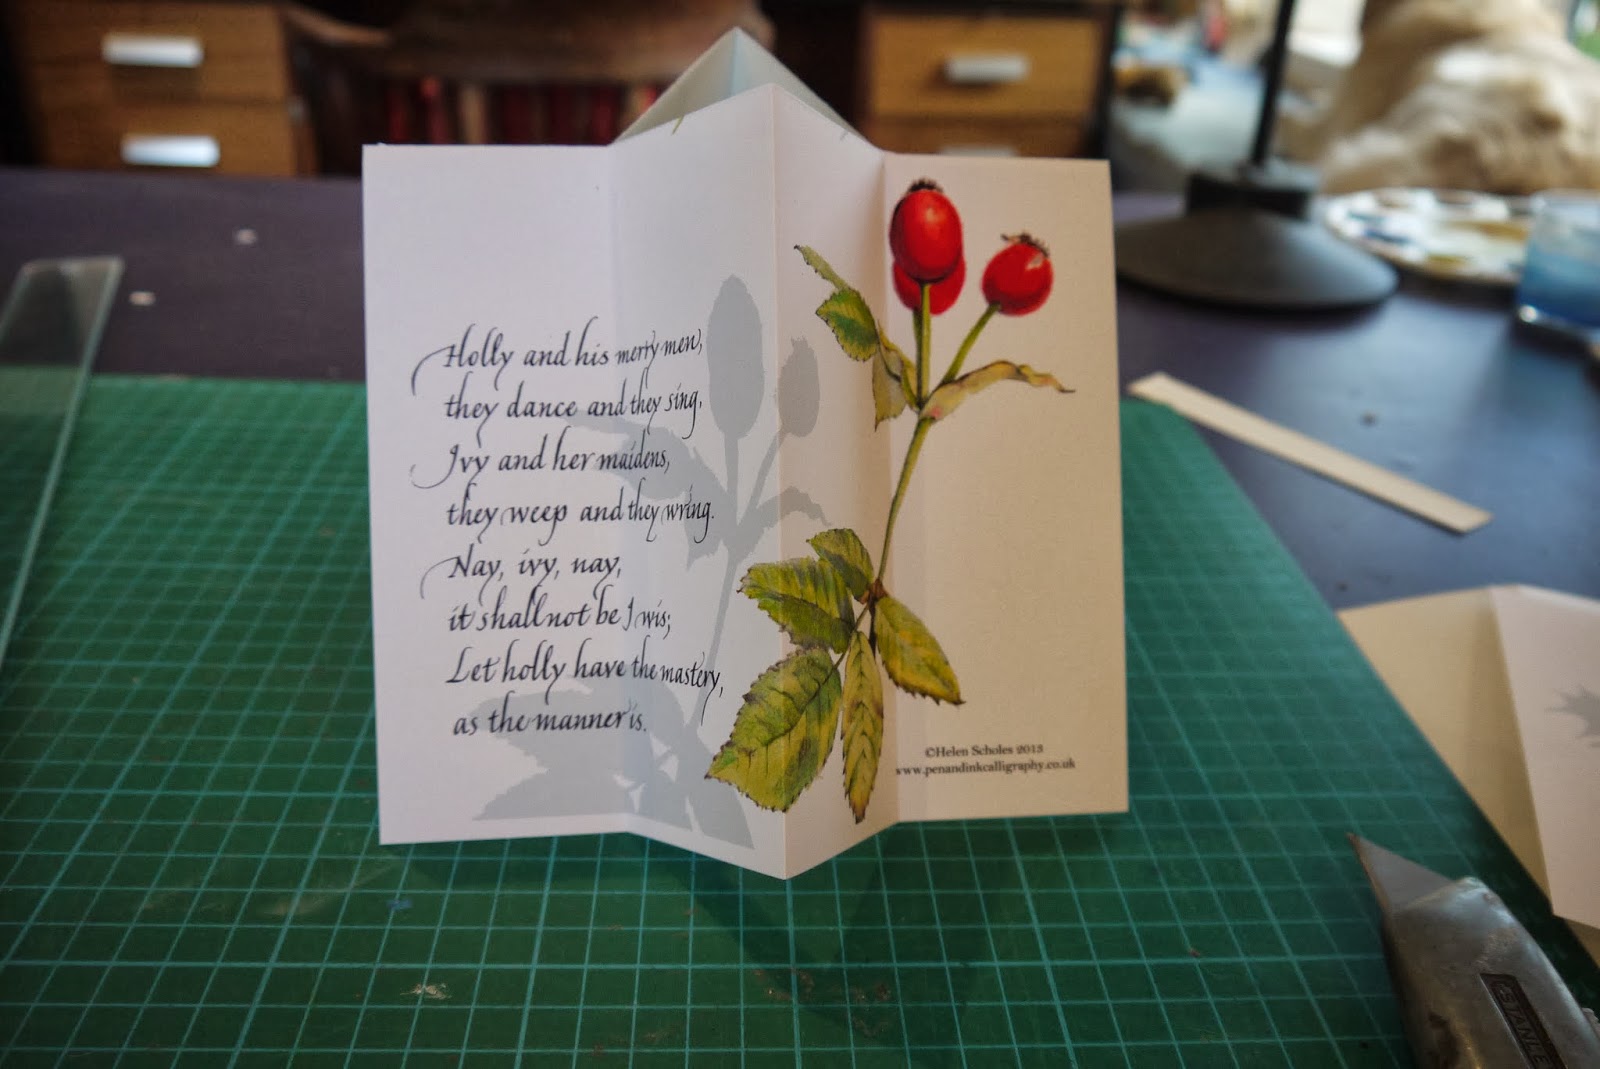 Holly and his merry men,
they dance and they sing,
Ivy and her maidens,
they weep and they wring.
Nay, ivy, nay,
it shall not be I wis;
Let holly have the mastery,
as the manner is.
©Helen Scholes 2013
www.penandinkcalligraphy.co.uk
STANLEY